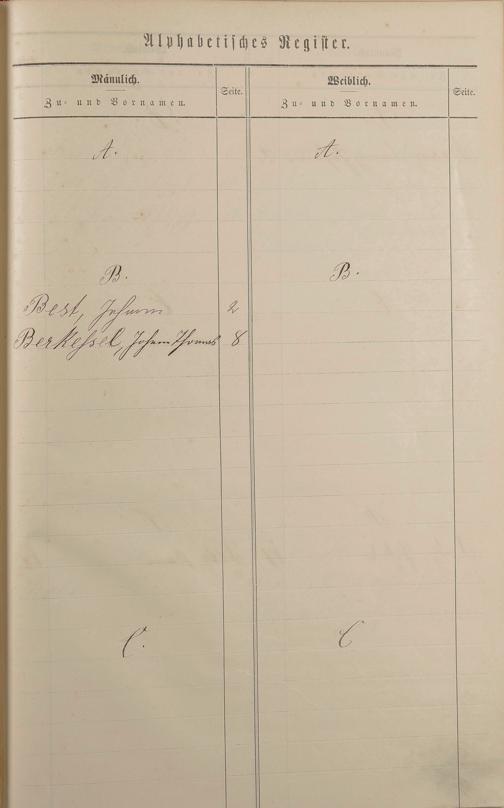 Alphabetisches Register.
Männlich. Seite. Weiblich. Seite.
Zu- und Vornamen. Zu- und Vornamen.
A. A.
B. B.
Best, Johann 2
Berkessel, Johann Thomas 8
C. C